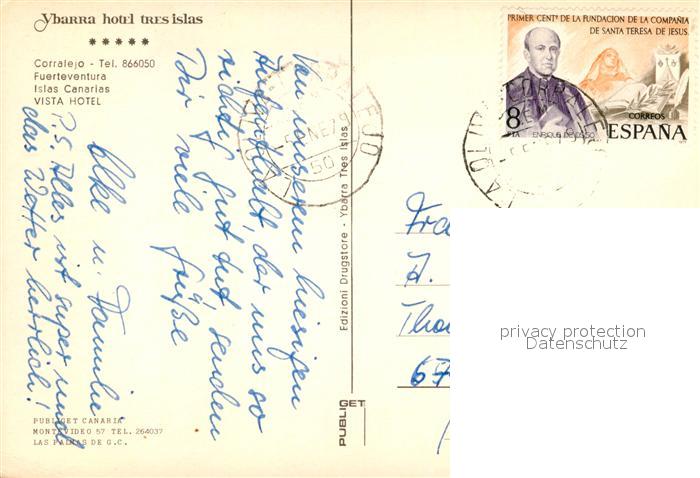 Ybarra hotel tres islas
★★★★★
Corralejo - Tel. 866050
Fuerteventura
Islas Canarias
VISTA HOTEL
Von unserem hiesigen
Aufenthalt, der uns so
richtig gut tut, senden
Dir viele Grüße
Elke u. Familie
P.S. Alles ist super und
das Wetter herrlich!
PUBLIGET CANARIA
MONTEVIDEO 57 TEL. 264037
LAS PALMAS DE G.C.
Edizioni Drugstore - Ybarra Tres Islas
PUBLIGET
PRIMER CENTº DE LA FUNDACION DE LA COMPAÑIA
DE SANTA TERESA DE JESUS.
8
PTA
ENRIQUE DE OSSO
CORREOS
ESPAÑA
ENE 79
A.
67
privacy protection
Datenschutz